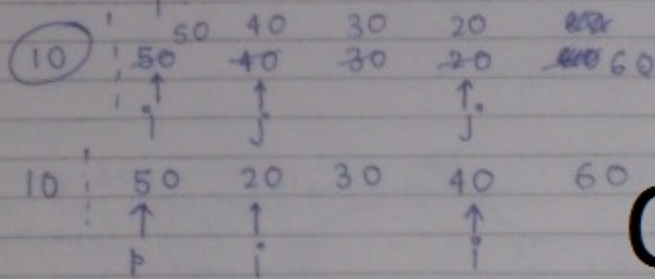 50 40 30 20
10 50 40 30 20 60
i j j
10 50 20 30 40 60
p i i